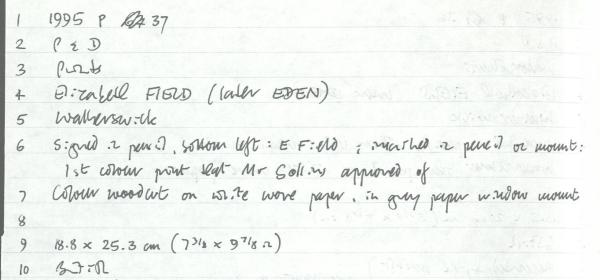 1 1995 P 37
2 P & D
3 Prints
4 Elizabeth FIELD (later EDEN)
5 Walberswick
6 Signed in pencil, bottom left: E Field; inscribed in pencil on mount:
1st colour print that Mr approved of
7 Colour woodcut on white wove paper, in grey paper window mount
8
9 18.8 x 25.3 cm (7 3/8 x 9 7/8 in)
10